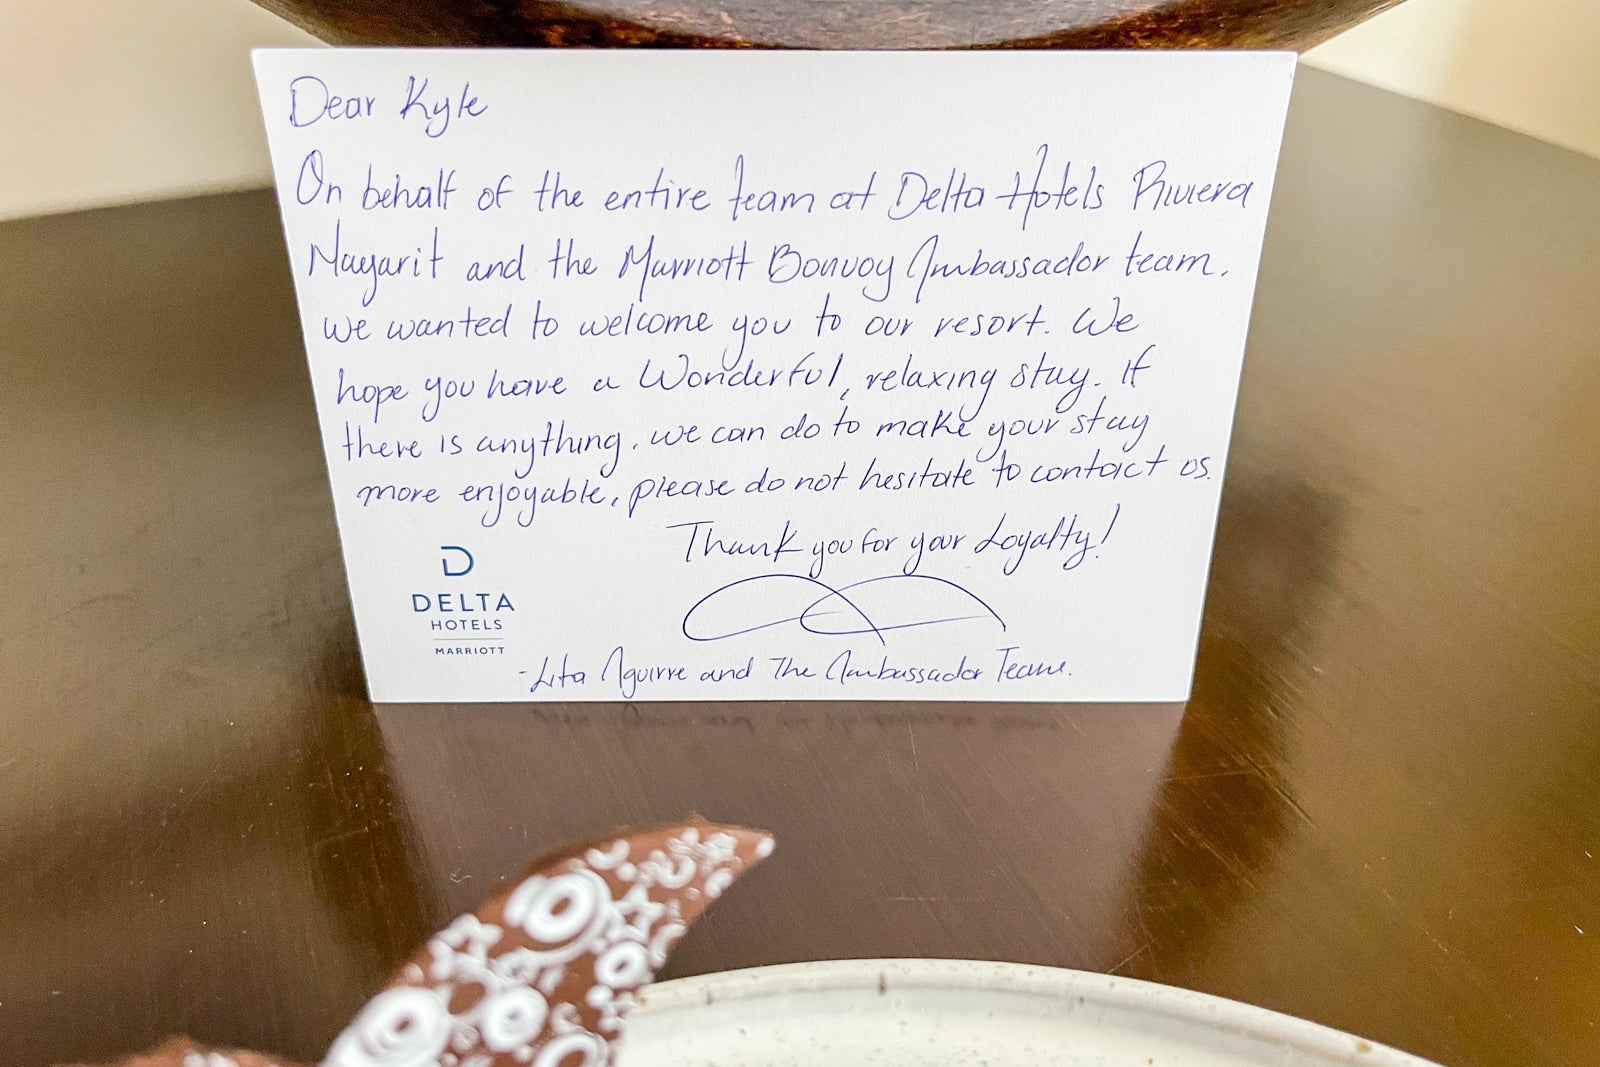 Dear Kyle
On behalf of the entire team at Delta Hotels Riviera
Nayarit and the Marriott Bonvoy Ambassador team,
we wanted to welcome you to our resort. We
hope you have a Wonderful, relaxing stay. If
there is anything, we can do to make your stay
more enjoyable, please do not hesitate to contact us.
Thank you for your Loyalty!
D
DELTA
HOTELS
MARRIOTT
-Lita Aguirre and The Ambassador Team.